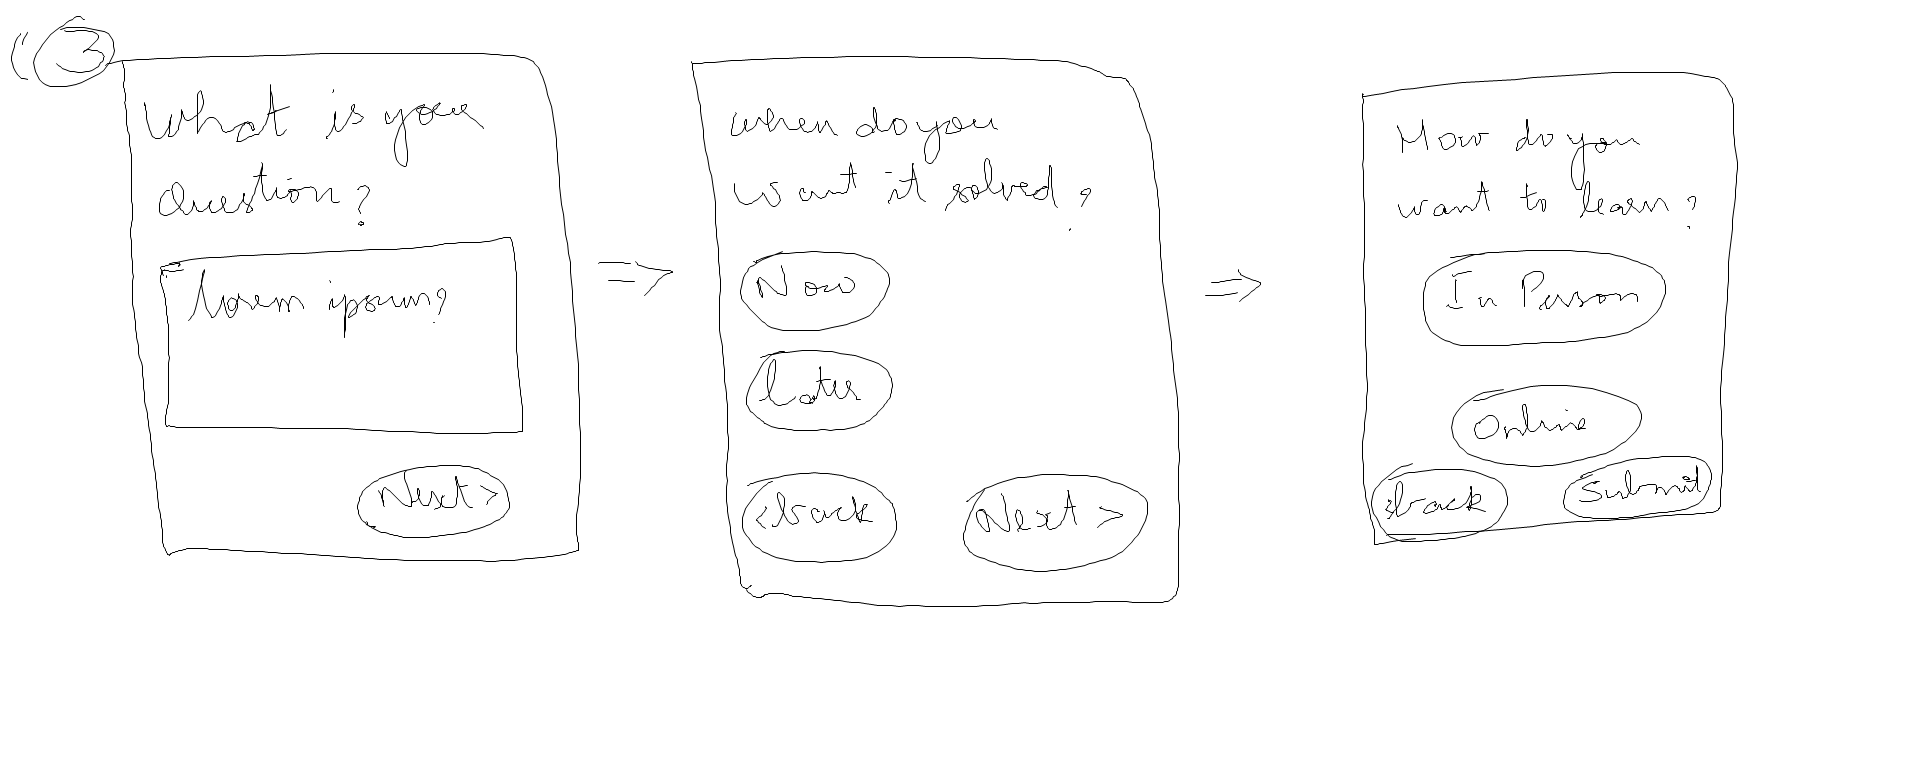 3
What is your
Question?
Lorem ipsum?
Next >
When do you
want it solved?
Now
Later
<back
Next >
How do you
want to learn?
In Person
Online
<back
Submit